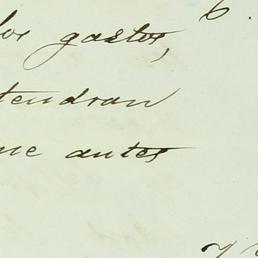 los gastos, 6.
tendran
antes